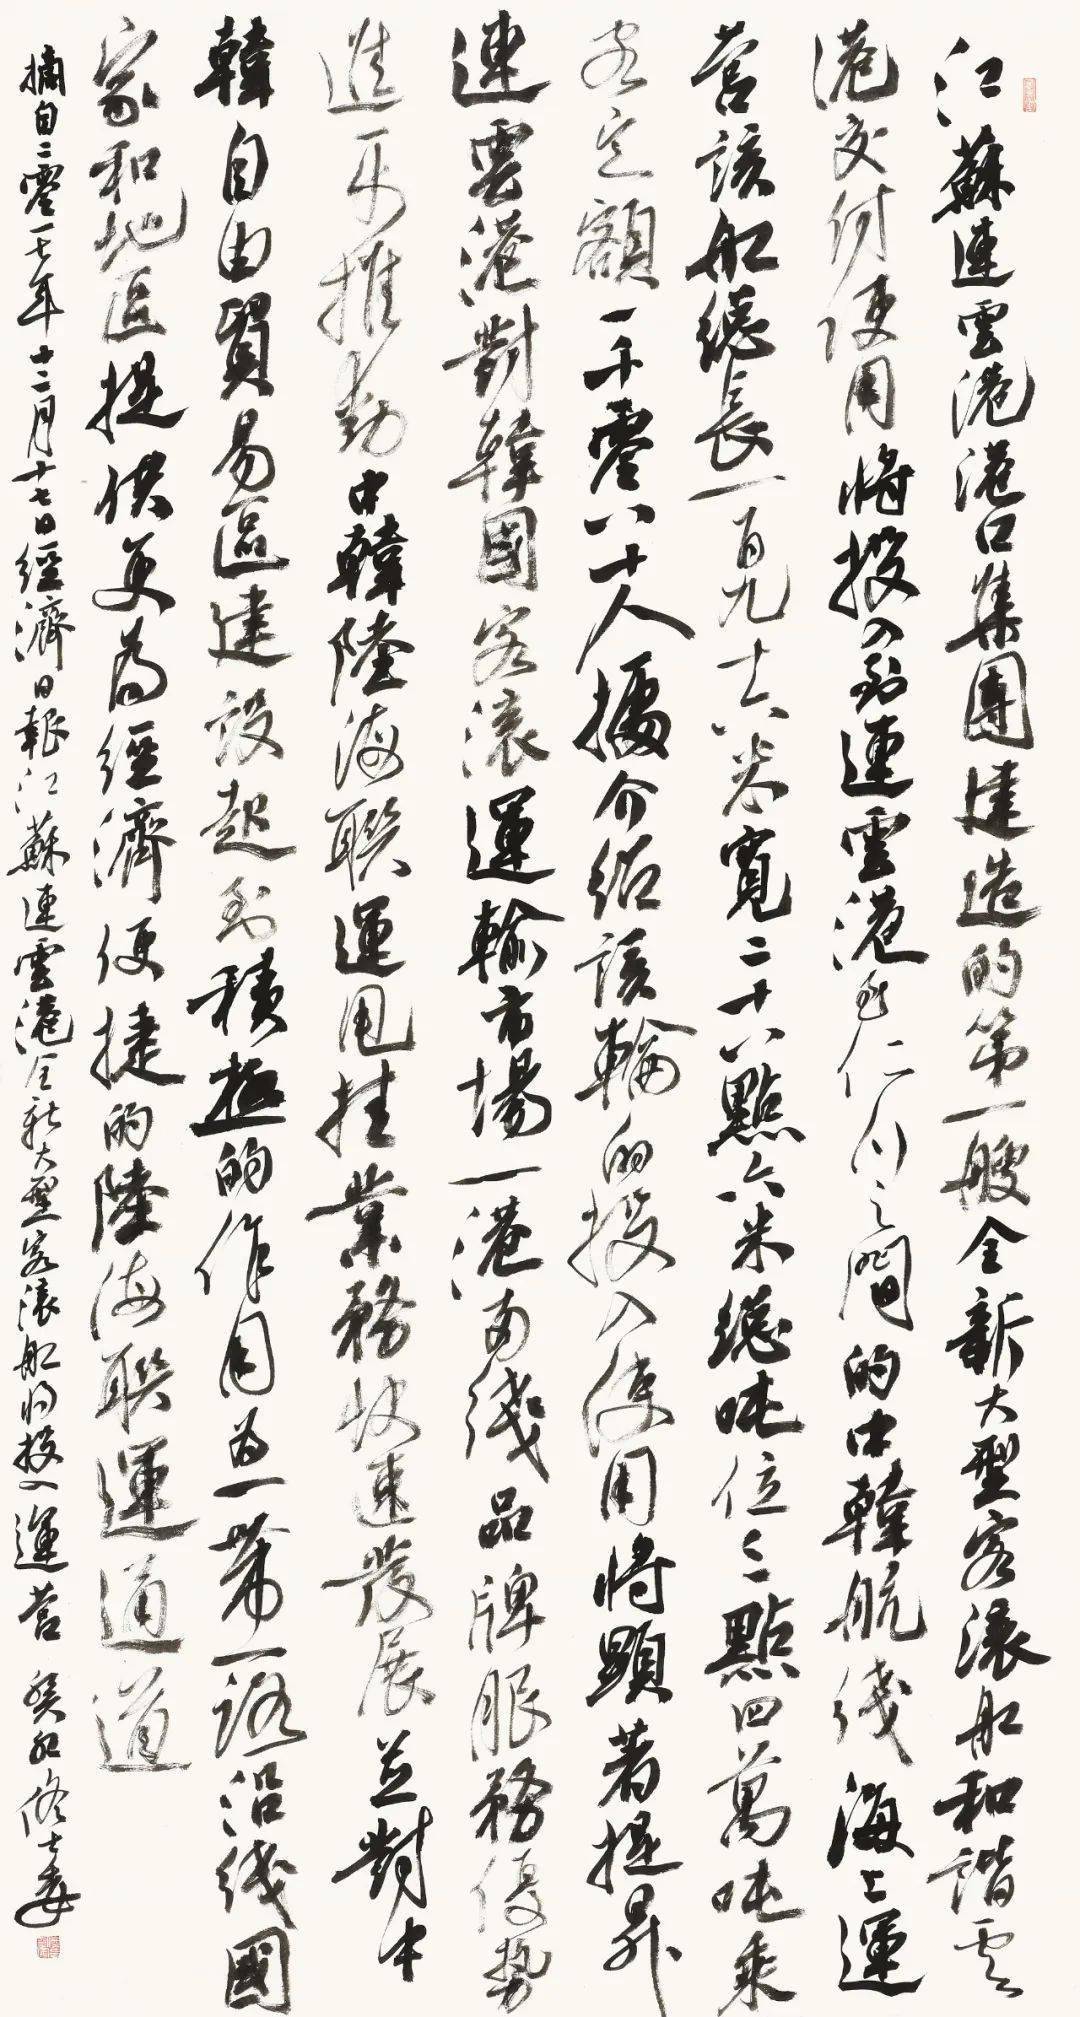 江蘇連雲港港口集團建造的第一艘全新大型客滾船和諧雲
港交付使用將投入到連雲港至仁川之間的中韓航綫海上運
營該船總長一百九十六米寬二十八點六米總噸位三點四萬噸乘
客定額一千零八十人據介紹該輪的投入使用將顯著提昇
連雲港對韓國客滾運輸市場一港兩綫品牌服務優勢
進而推動中韓陸海聯運甩挂業務快速發展並對中
韓自由貿易區建設起到積極的作用為一帶一路沿綫國
家和地區提供更為經濟便捷的陸海聯運通道
摘自二零一七年十二月十七日經濟日報江蘇連雲港全新大型客滾船將投入運營 癸卯 修士奉